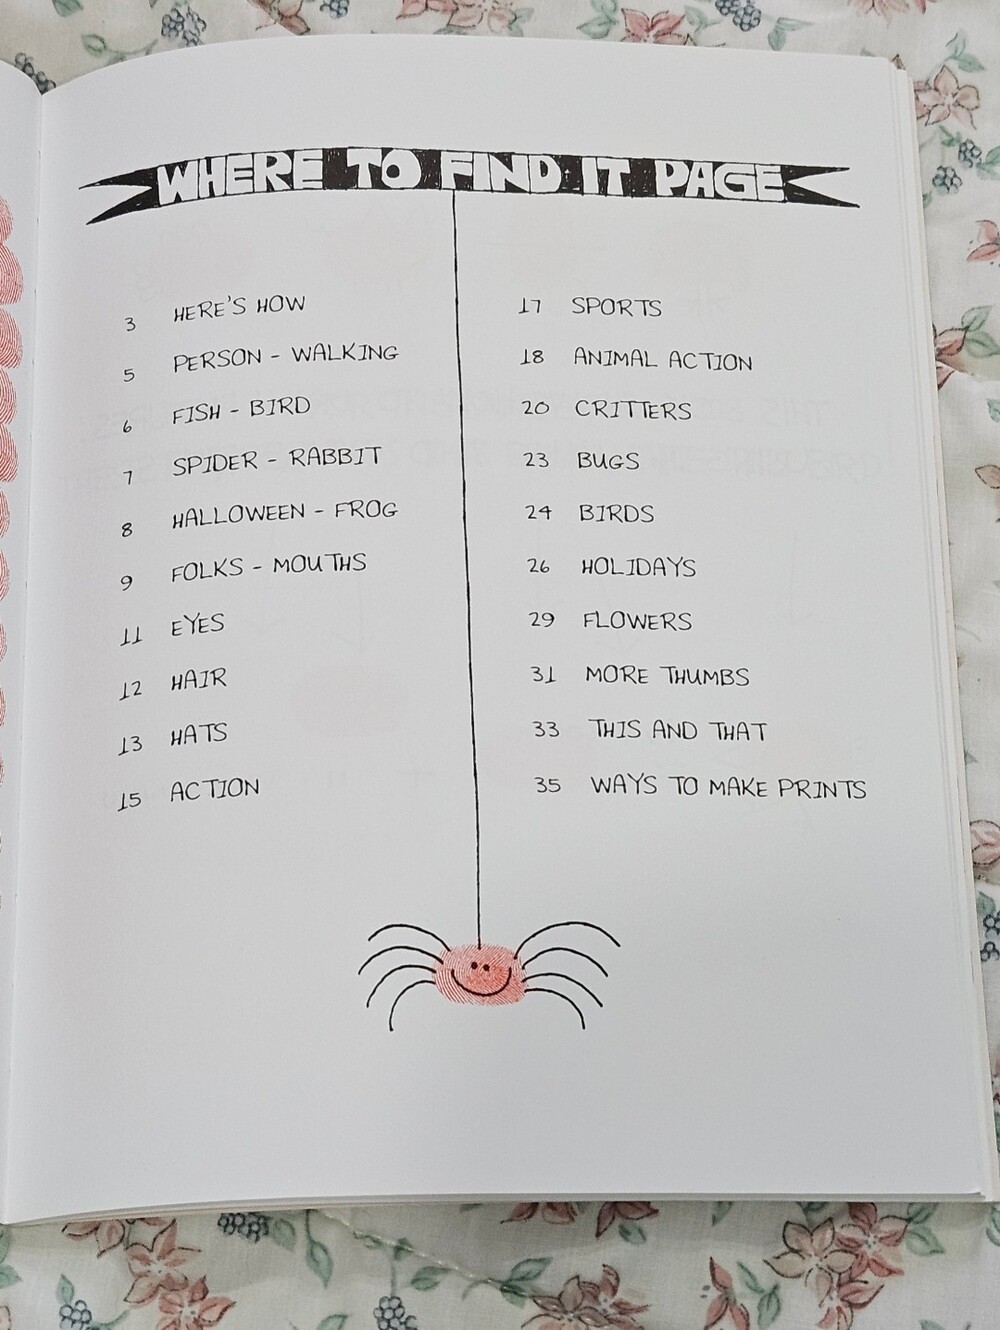 WHERE TO FIND IT PAGE
3 HERE'S HOW
5 PERSON - WALKING
6 FISH - BIRD
7 SPIDER - RABBIT
8 HALLOWEEN - FROG
9 FOLKS - MOUTHS
11 EYES
12 HAIR
13 HATS
15 ACTION
17 SPORTS
18 ANIMAL ACTION
20 CRITTERS
23 BUGS
24 BIRDS
26 HOLIDAYS
29 FLOWERS
31 MORE THUMBS
33 THIS AND THAT
35 WAYS TO MAKE PRINTS